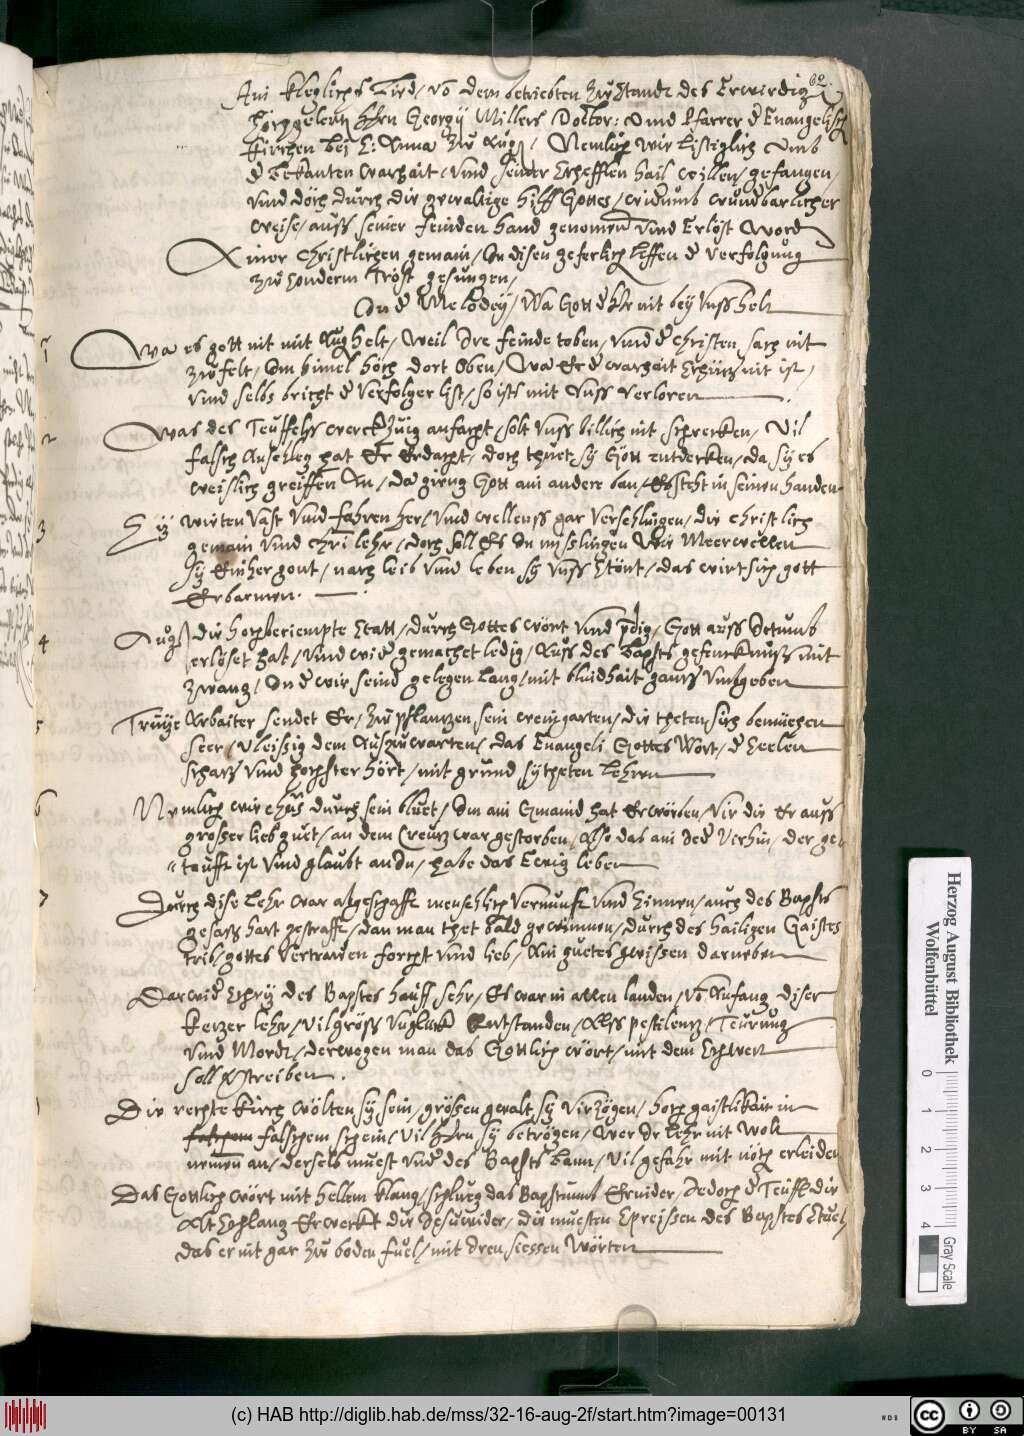 62.
Ain kleglichs Lied / vo dem betriebten Zuͦstandt des Erwirdig
Hochgelertn Hrn Georgÿ Millers Doctor: Vnnd Pfarrer d Euangelisch
Kirchen beÿ S: Anna zuͦ Augs / Nemlich wie listiglich vmb
d bekanten warhait / vnnd seiner Schefflen hail willen / gefangen /
vnnd doch durch die gewaltige hilff Gottes / widumb wundbarlicher
weise / auss seiner feinden hand genomen vnnd Erlöst Word
Ainer Christlichen gemain / In disen geferlichen leffen d verfolgung
zuͦ sonderm trost gesungen /
In d Melodeÿ / Wa Gott d her nit beÿ vnss helt
1 Wa es gott nit mit Augs helt / weil Ire feinde toben / vnnd d Christen sach nit
zuͦfelt / Im himel hoch dort Oben / Wa Er d warhait schutz nit ist /
vnnd selbs bricht d verfolger list / so ists mit vnss verloren
2 Was des Teuffelss werckzeug anfacht / solt vnss billich nit schrecken / Vil
falsch Anschleg hat Er Erdacht / doch thuet sÿ Gott entdecken / da sÿ es
weislich greiffen An / da gieng Gott ain andere ban / Eh steht in seinen handen
3 Sÿ wieten vast vnnd fahren her / vnnd wellenss gar verschlingen / die Christlich
gemain vnnd Chri lehr / doch soll Es In misslingen wie Meerwellen
sÿ Einher gont / nach leib vnnd leben sÿ vnss stönt / das wirt sich gott
Erbarmen.
4 Augs die hochberiempte Statt / durch Gottes wort vnnd pdig / Gott auss Irtumb
erlöset hat / vnnd wid gemachet ledig / Auss des Bapsts gefencknuss mit
zwang / In d wir seind gelegen lang / mit blindhait gantz vmbgeben
5 Treüwe Arbaiter sendet Er / zuͦ pflantzen sein weingarten / die theten sich bemüehen
seer / vleissig dem Auszuͦwarten / das Euangeli Gottes Wort / d Seelen
schatz vnnd hochster hort / mit grund sÿ theten lehren
6 Nemlich wie Chus durch sein bluet / Im ain Gmaind hat Erworben / Fir die Er auss
grosser lieb guet / an dem Creutz war gestorben / Also das ain Ied verhin / der ge
=taufft ist vnnd glaubt an In / habe das Ewig leben
7 Durch dise lehr war abgeschafft menschlich vernunft vnnd sinnen / auch des Bapsts
gesatz hart gestrafft / dan man thet bald gewinnen / durch des hailigen Gaistes
trib / gottes vertrawen forcht vnnd lieb / Ain guetes gwissen darneben
Darwid schrÿ des Bapstes hauff sehr / Es war in allen landen / Vo Anfang diser
Ketzer lehr / vil gross vngluck Entstanden / Alss pestilentz / Teurung
vnnd Mordt / derwegen man das Gottlich wort / mit dem Schwert
soll vstreiben.
Die rechte Kirch wolten sÿ sein / grossen gewalt sÿ virzogen / hoch gaistlikait in
falschem schein / vil hern sÿ betrogen / Wer Ir lehr nit wolt
nemen an / derselb muest vnd des Bapsts bann / vil gefahr mit noth erleiden
Das Gottlich wort mit hellem klang / schlueg das Bapstumb Ernider / Iedoch d Teuffl die
Alt schlang Erweckt die Iesuwider / die muesten spreissen des Bapstes stuel /
das er nit gar zuͦ boden fuel / mit Iren siessen Worten
Herzog August Bibliothek
Wolfenbüttel
0 1 2 3 4
Gray Scale
(c) HAB http://diglib.hab.de/mss/32-16-aug-2f/start.htm?image=00131
WDB
cc BY SA